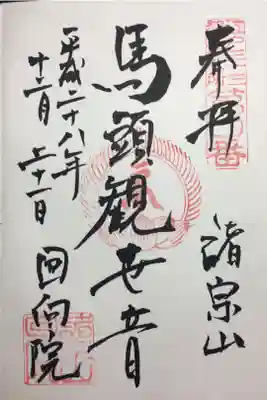 奉拝
清宗山
馬頭観世音
平成二十八年
十二月三十一日
回向院